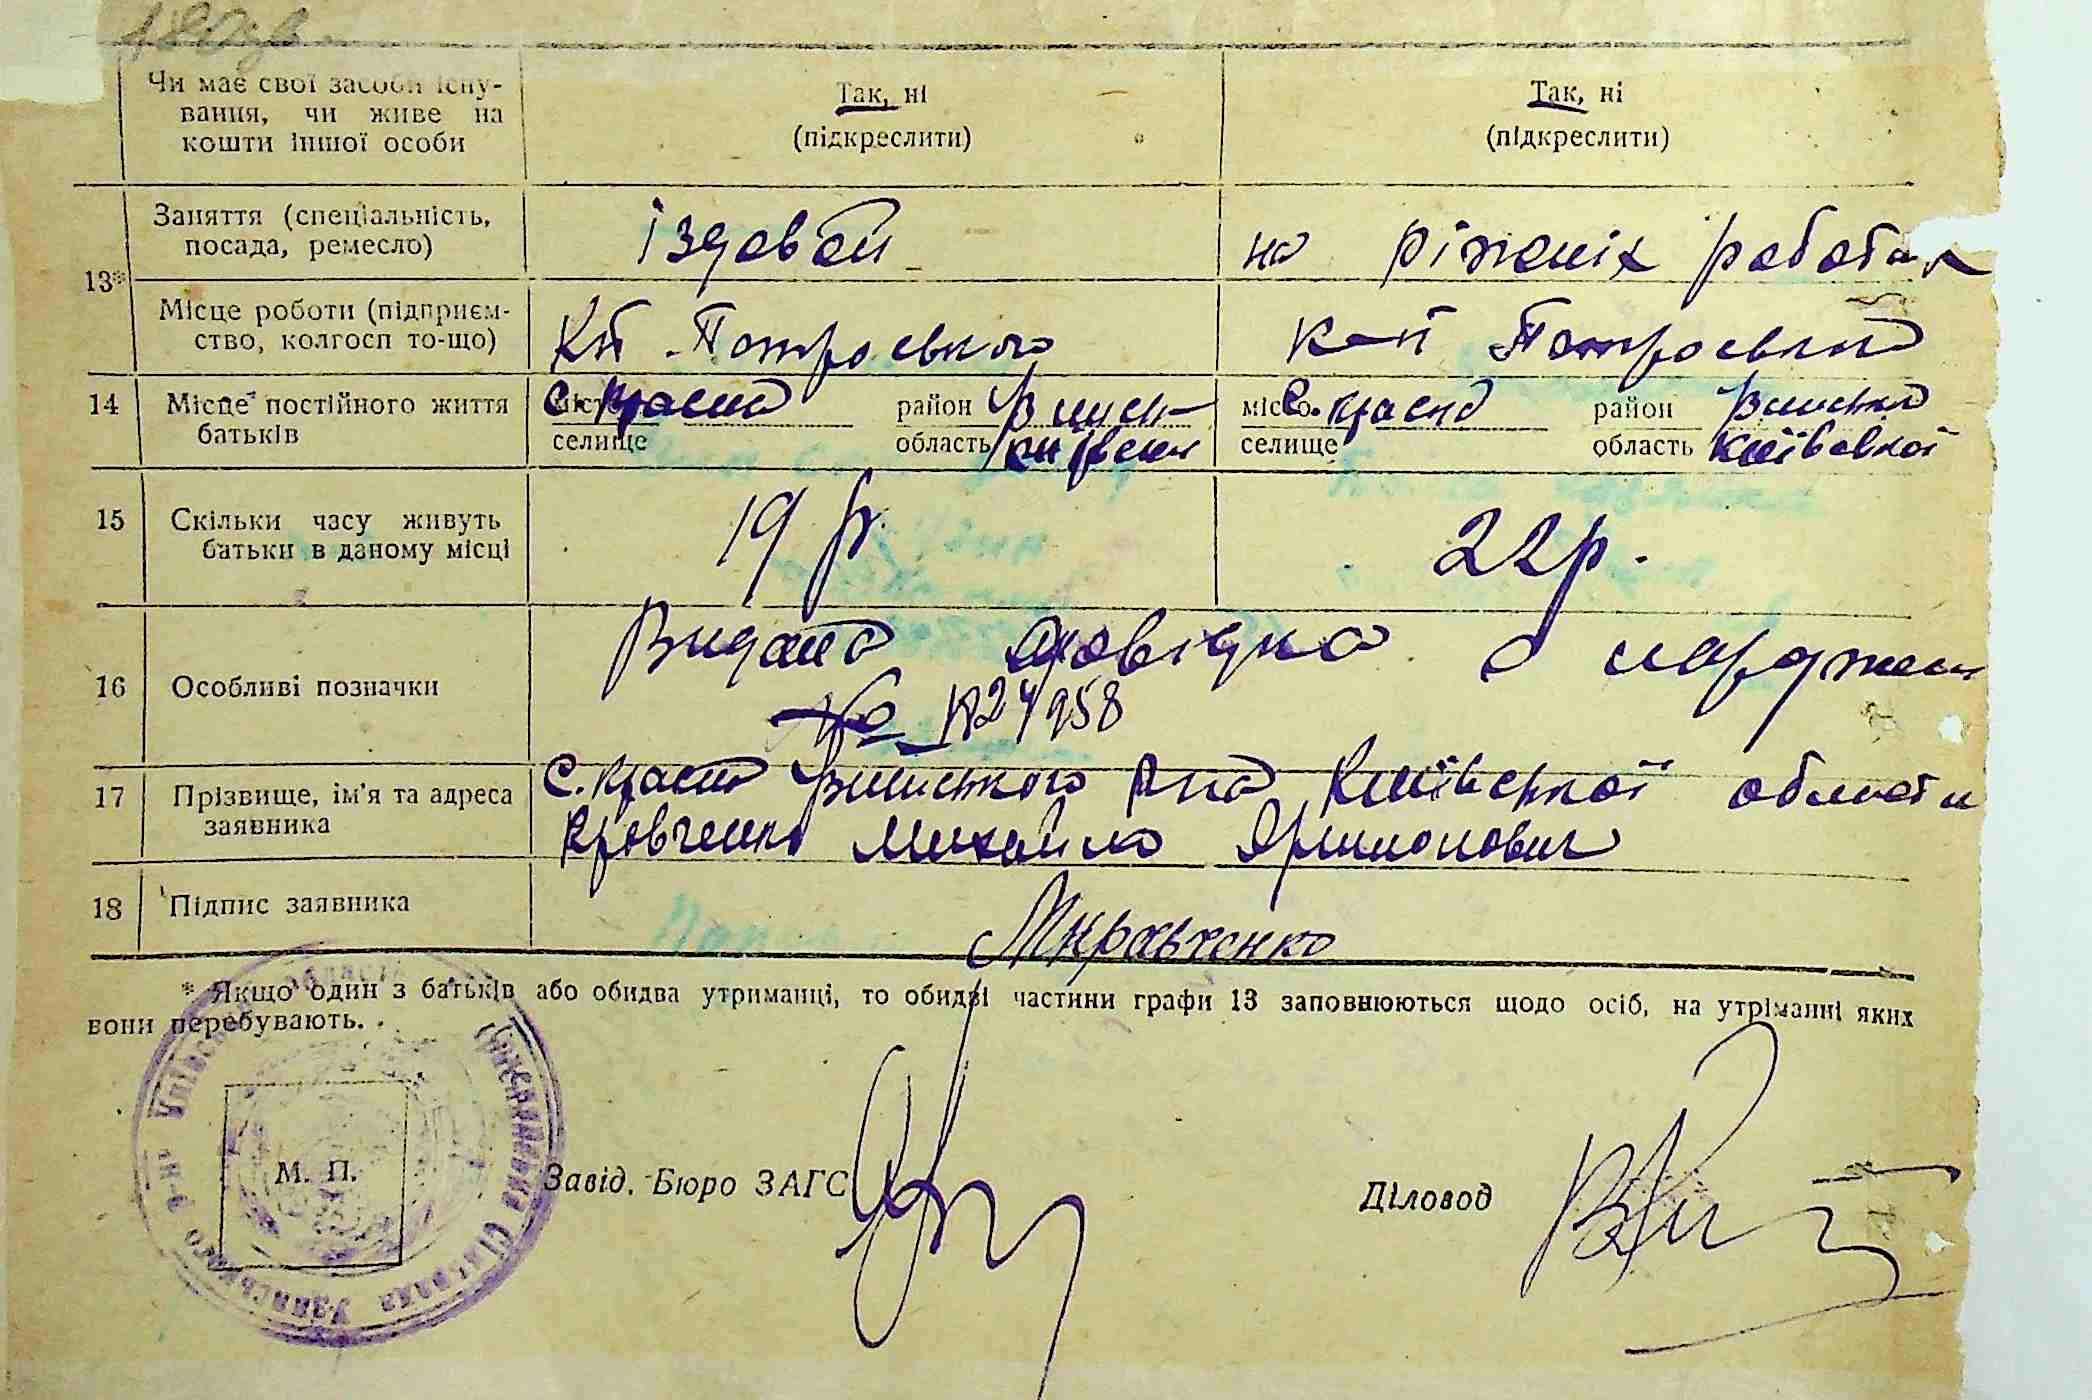 Чи має свої засоби існу-
вання, чи живе на
кошти іншої особи
Так, ні
(підкреслити)
Так, ні
(підкреслити)
13*
Заняття (спеціальність,
посада, ремесло)
їздовай
на ріжних роботах
Місце роботи (підприєм-
ство, колгосп то-що)
Петровського
14
Місце постійного життя
батьків
місто с. Красне
район
селище
область
місто с. Красне
район
селище
область Київської
15
Скільки часу живуть
батьки в даному місці
19 р.
22 р.
16
Особливі позначки
Видана довідка о нарджен
№ 124958
17
Прізвище, ім'я та адреса
заявника
с. Красне р-на Київської області
Кравченко Михайло
18
Підпис заявника
МКравченко
* Якщо один з батьків або обидва утриманці, то обидві частини графи 13 заповнюються щодо осіб, на утріманні яких
вони перебувають.
М. П.
Завід. Бюро ЗАГС
Діловод